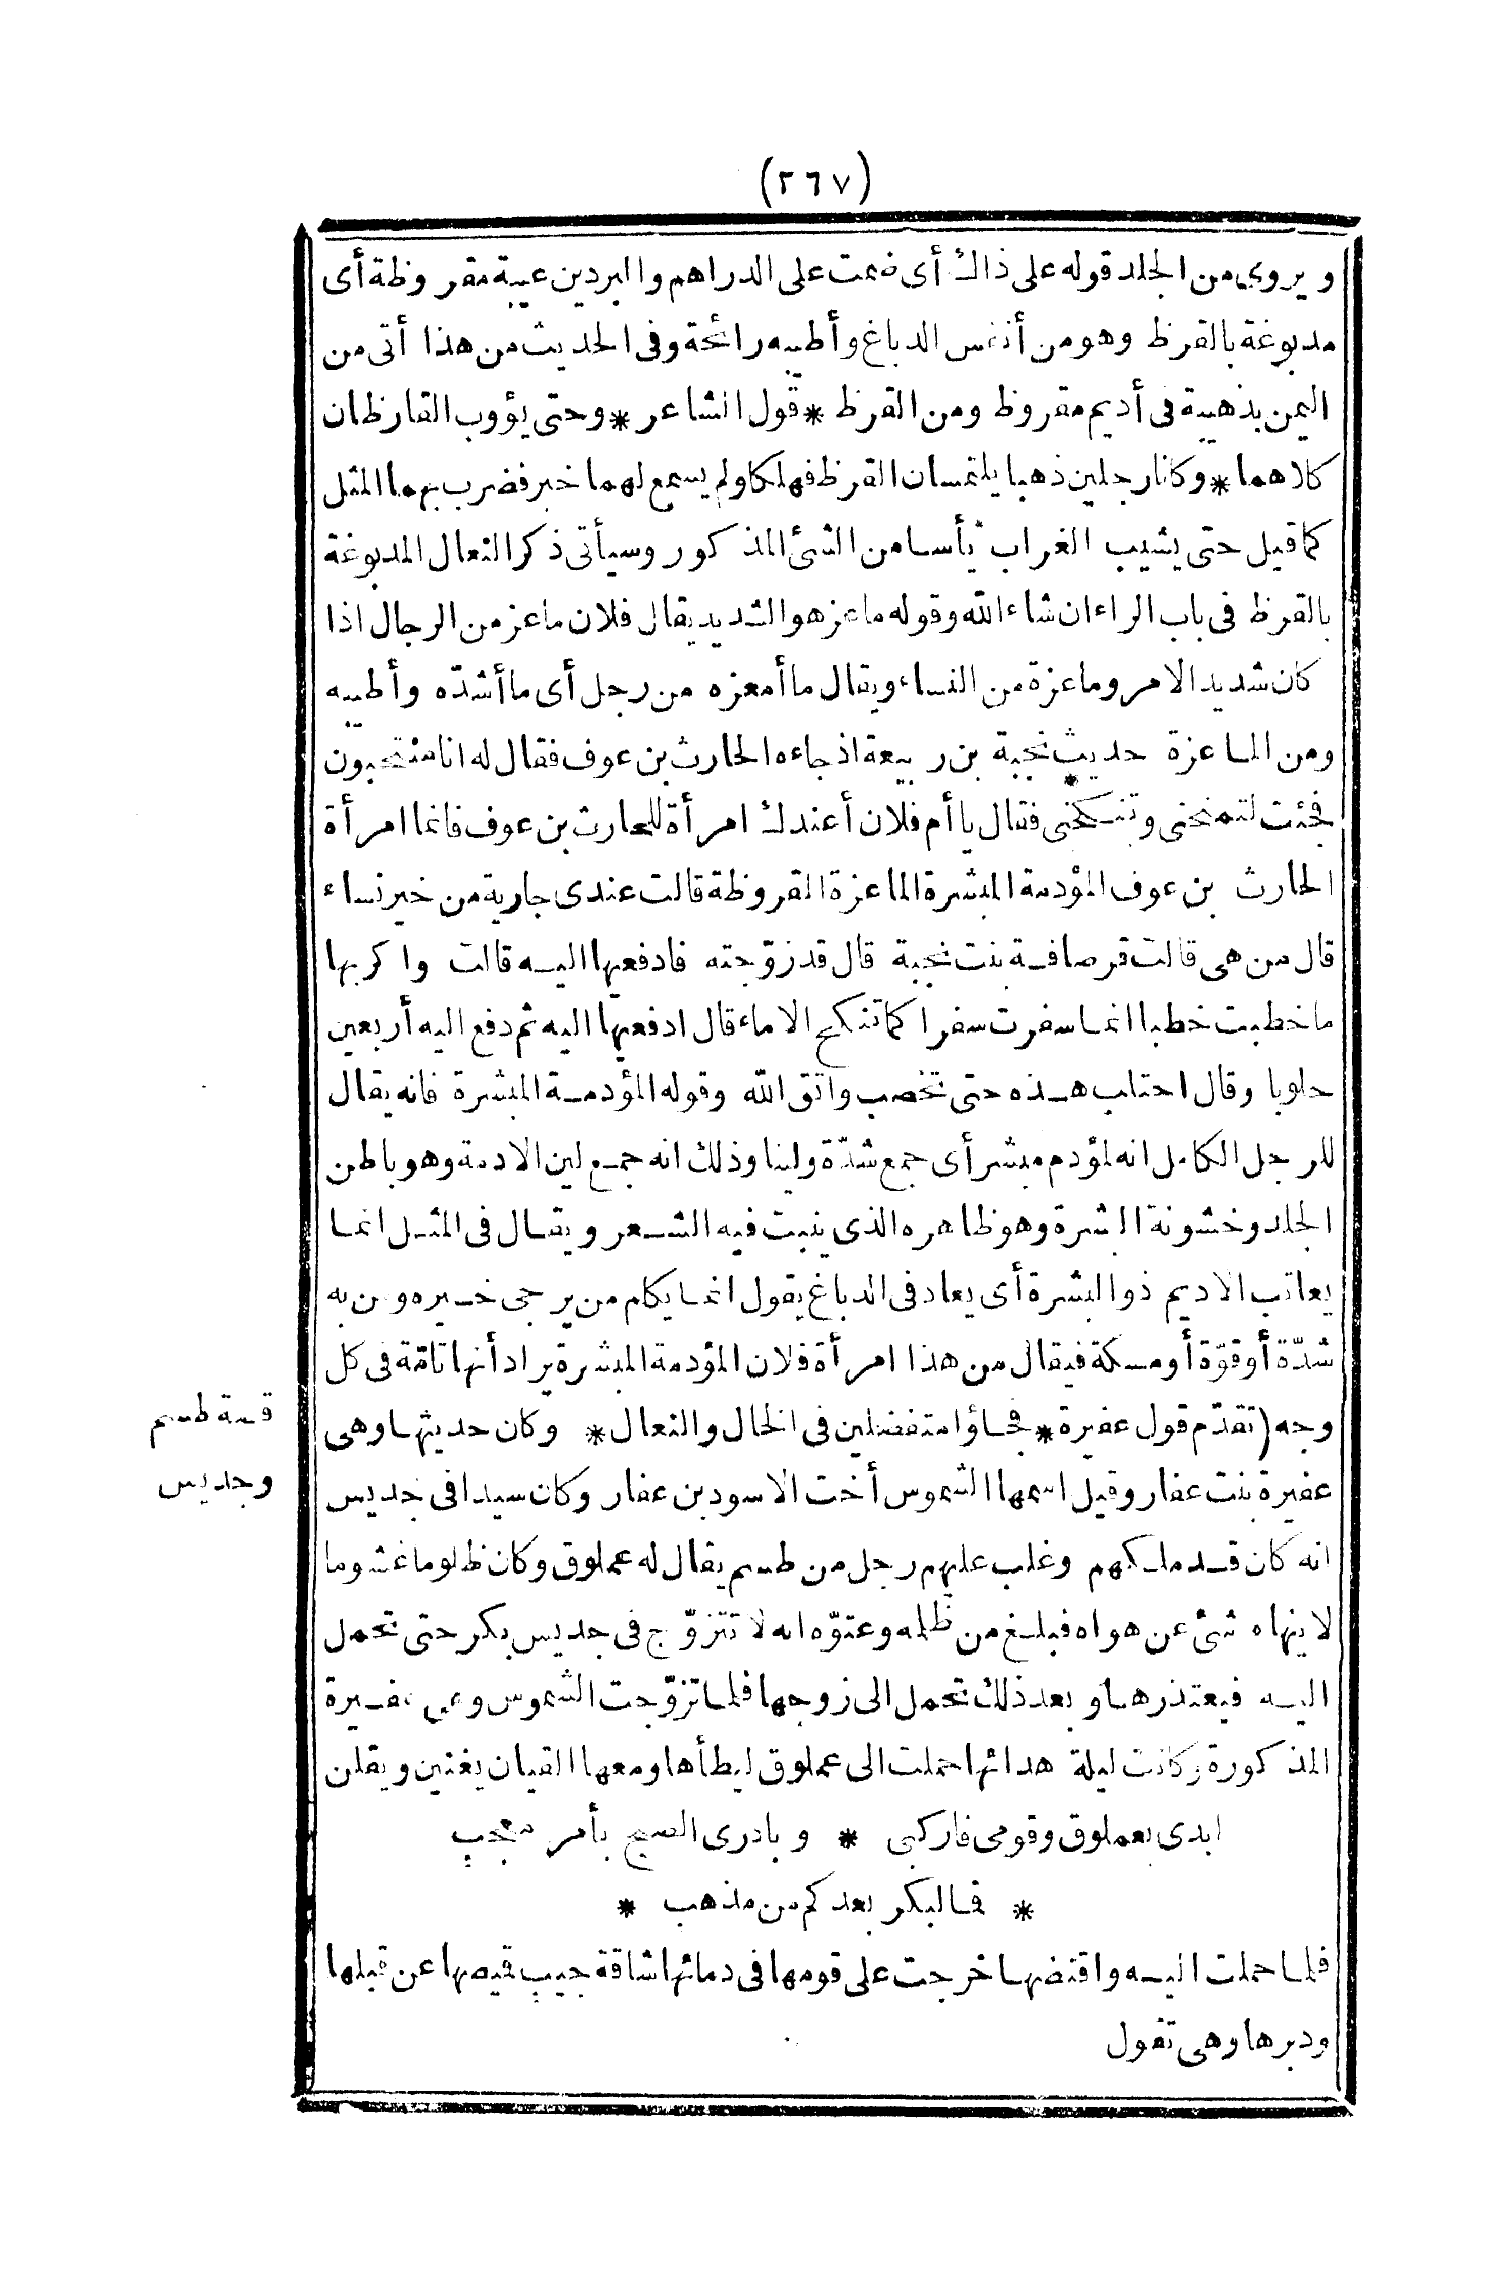 (٢٦٧)
ويروى من الجلد قوله على ذاك أى ضمت على الدراهم والبردين عيبة مقروظة أى
مدبوغة بالقرظ وهو من أنفس الدباغ وأطيبه رائحة وفى الحديث من هذا أتى من
اليمن بذهيبة فى أديم مقروظ ومن القرظ * قول الشاعر * وحتى يؤوب القارظان
كلاهما * وكانا رجلين ذهبا يلتمسان القرظ فهلكا ولم يسمع لهما خبر فضرب بهما المثل
كما قيل حتى يشيب الغراب يأسا من الشئ المذكور وسيأتى ذكر النعال المدبوغة
بالقرظ فى باب الراء ان شاء الله وقوله ماعز هو الشديد يقال فلان ماعز من الرجال اذا
كان شديد الامر وماعزة من النساء ويقال ما أمعزه من رجل أى ما أشدّه وأطيبه
ومن الماعزة حديث نجبة بن ربيعة اذ جاءه الحارث بن عوف فقال له انا منتجبون
فجئت لتمنحنى وتنكحنى فقال يا أم فلان أعندك امرأة للحارث بن عوف فانما امرأة
الحارث بن عوف المؤدمة المبشرة الماعزة القروظة قالت عندى جارية من خير نساء
قال من هى قالت قرصافة بنت نجبة قال قد زوّجته فادفعيها اليه قالت واكربها
ما خطبت خطبا انما سفرت سفرا كما تنكح الاماء قال ادفعيها اليه ثم دفع اليه أربعين
حلوبا وقال احتلب هذه حتى تخصب واتق الله وقوله المؤدمة المبشرة فانه يقال
للرجل الكامل انه لمؤدم مبشر أى جمع شدّة ولينا وذلك انه جمع لين الادمة وهو باطن
الجلد وخشونة البشرة وهو ظاهره الذى ينبت فيه الشعر ويقال فى المثل انما
يعاتب الاديم ذو البشرة أى يعاد فى الدباغ يقول انما يكلم من يرجى خيره ومن به
شدّة أو قوّة أو مسكة فيقال من هذا امرأة فلان المؤدمة المبشرة يراد أنها تامّة فى كل
وجه (تقدّم قول عفيرة * فجاؤا متفضلين فى الخال والنعال * وكان حديثها وهى
عفيرة بنت عفار وقيل اسمها الشموس أخت الاسود بن عفار وكان سيدا فى جديس
انه كان قد ملكهم وغلب عليهم رجل من طسم يقال له عملوق وكان ظلوما غشوما
لا ينهاه شئ عن هواه فبلغ من ظلمه وعتوّه انه لا تتزوّج فى جديس بكر حتى تحمل
اليه فيعتذرها وبعد ذلك تحمل الى زوجها فلما تزوّجت الشموس وهى عفيرة
المذكورة وكانت ليلة هدائها حملت الى عملوق ليطأها ومعها القيان يغنين ويقلن
ابدى بعملوق وقومى فاركبى * وبادرى الصبح بأمر معجب
* فما لبكر بعدكم من مذهب *
فلما حملت اليه واقتضها خرجت على قومها فى دمائها شاقة جيب قيصها عن قبلها
ودبرها وهى تقول
قصة طسم
وجديس